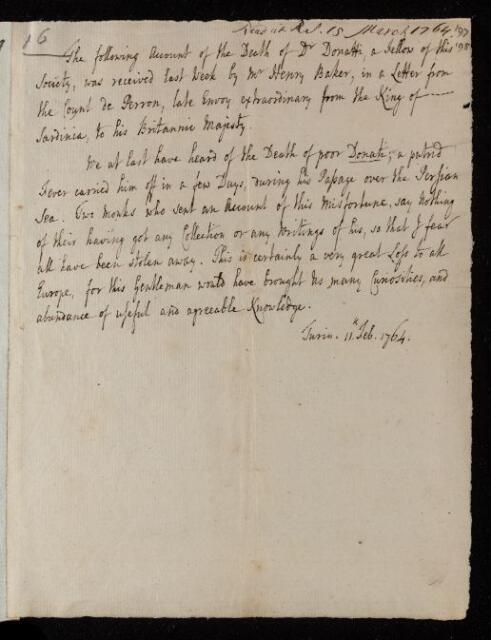 Read at R.S. 15 March 1764
197
198
16
The following Account of the Death of Dr Donatti, a Fellow of this
Society, was received last Week by Mr Henry Baker, in a Letter from
the Count de Perron, late Envoy extraordinary from the King of
Sardinia, to his Britannic Majesty.
We at last have heard of the Death of poor Donati; a putrid
Fever carried him off in a few Days, during his Passage over the Persian
Sea. Two Monks who sent an Account of this Misfortune, say nothing
of their having got any Collection or any Writings of his, so that I fear
all have been stolen away. This is certainly a very great Loss to all
Europe, for this Gentleman would have brought Us many Curiosities, and
abundance of useful and agreeable Knowledge.
Turin. 11th Feb. 1764.